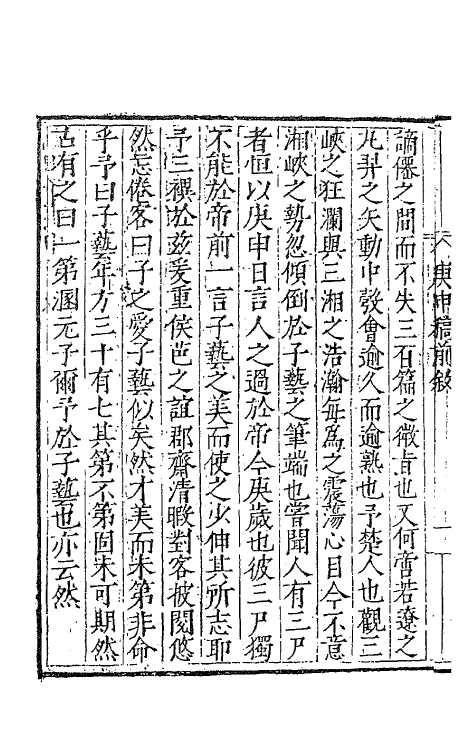 庚申稿前叙
一
謫僊之間而不失三百篇之微旨也又何啻若遼之
九羿之矢動中彀會逾久而逾熟也予楚人也觀三
峽之狂瀾與三湘之浩瀚每爲之震蕩心目今不意
湘峽之勢忽傾倒於子藝之筆端也嘗聞人有三尸
者恒以庚申日言人之過於帝今庚歲也彼三尸獨
不能於帝前一言子藝之美而使之少伸其所志耶
予三禩於兹爰重侯芭之誼郡齋清暇對客披閱悠
然忘倦客曰子之愛子藝似矣然才美而未第非命
乎予曰子藝年方三十有七其第不第固未可期然
古有之曰一第溷元子爾予於子藝也亦云然